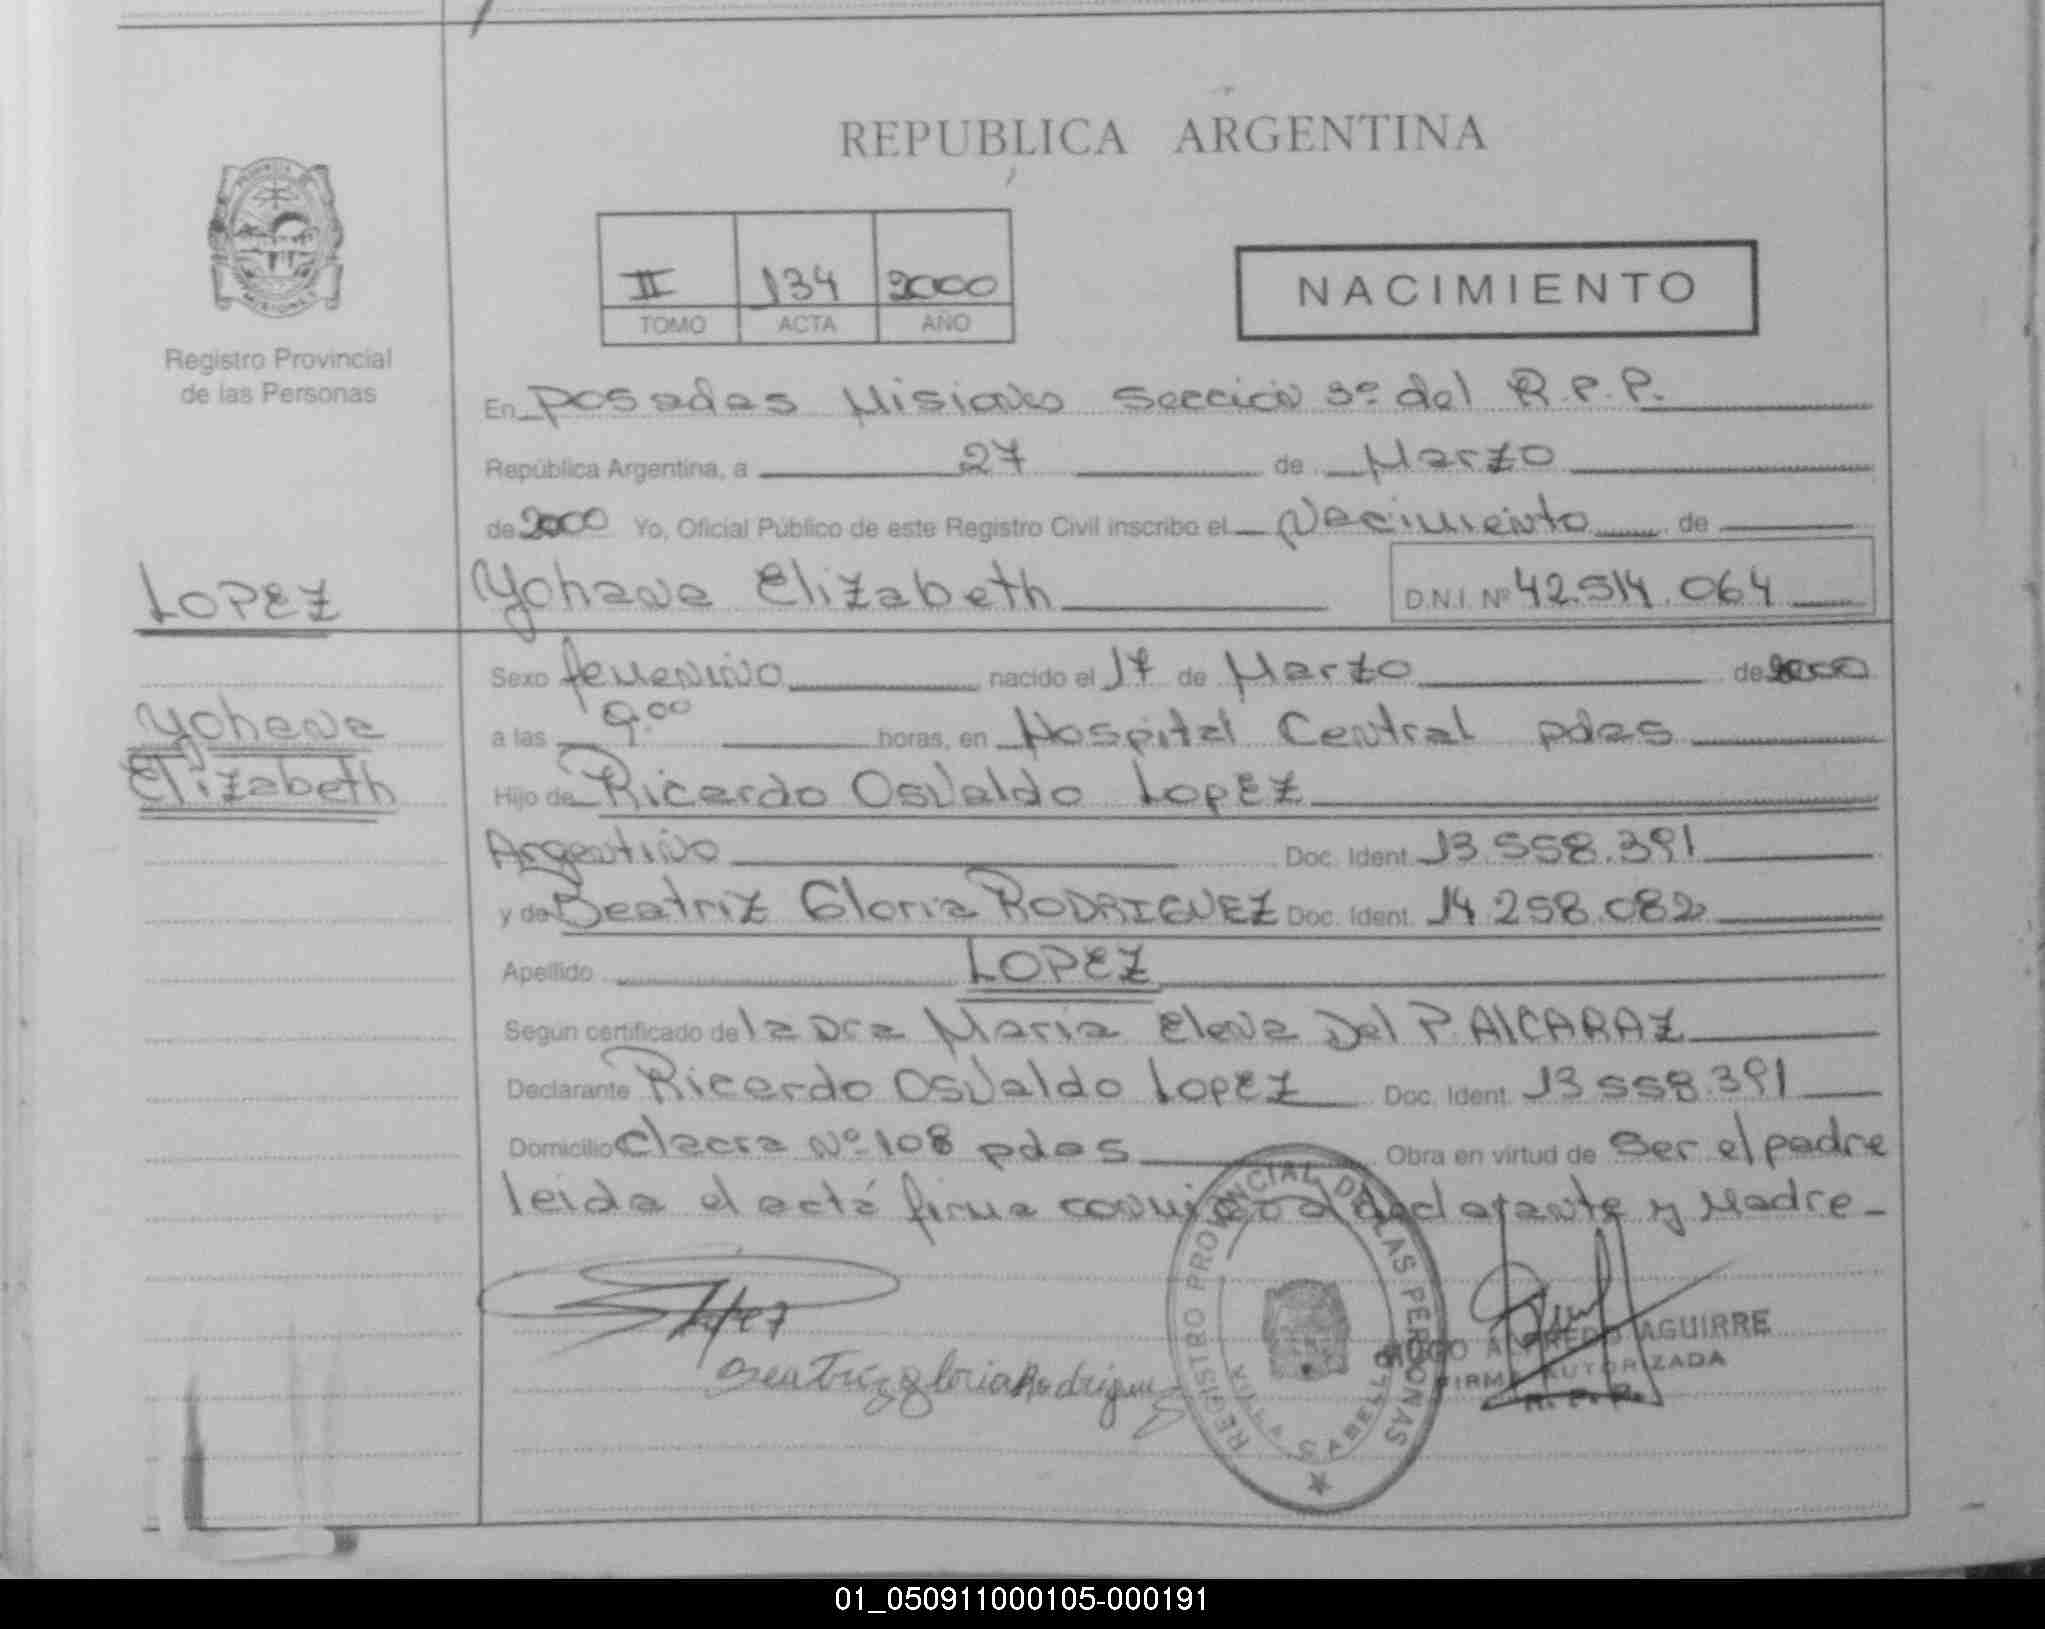 REPUBLICA ARGENTINA
II 134 2000
TOMO ACTA AÑO
NACIMIENTO
Registro Provincial
de las Personas
En Posadas Misiones Sección 3º del R.P.P.
República Argentina, a 27 de Marzo
de 2000 Yo, Oficial Público de este Registro Civil inscribo el Nacimiento de
LOPEZ
Yohana Elizabeth D.N.I. Nº 42.514.064
Yohana
Elizabeth
Sexo femenino nacido el 17 de Marzo de 2000
a las 9.00 horas, en Hospital Central pdas
Hijo de Ricardo Osvaldo Lopez
Argentino Doc. Ident. 13.558.391
y de Beatriz Gloria RODRIGUEZ Doc. Ident. 14.258.082
Apellido LOPEZ
Según certificado de la Dra Maria Elena Del P. AlCARAZ
Declarante Ricardo Osvaldo Lopez Doc. Ident. 13.558.391
Domicilio Chacra Nº 108 pdas Obra en virtud de Ser el padre
leida el acta firma conmigo el declarante y Madre
Beatriz Gloria Rodriguez
REGISTRO PROVINCIAL DE LAS PERSONAS
VILLA CABELLO
HUGO ALFREDO AGUIRRE
FIRMA AUTORIZADA
R.P.P.
01_050911000105-000191